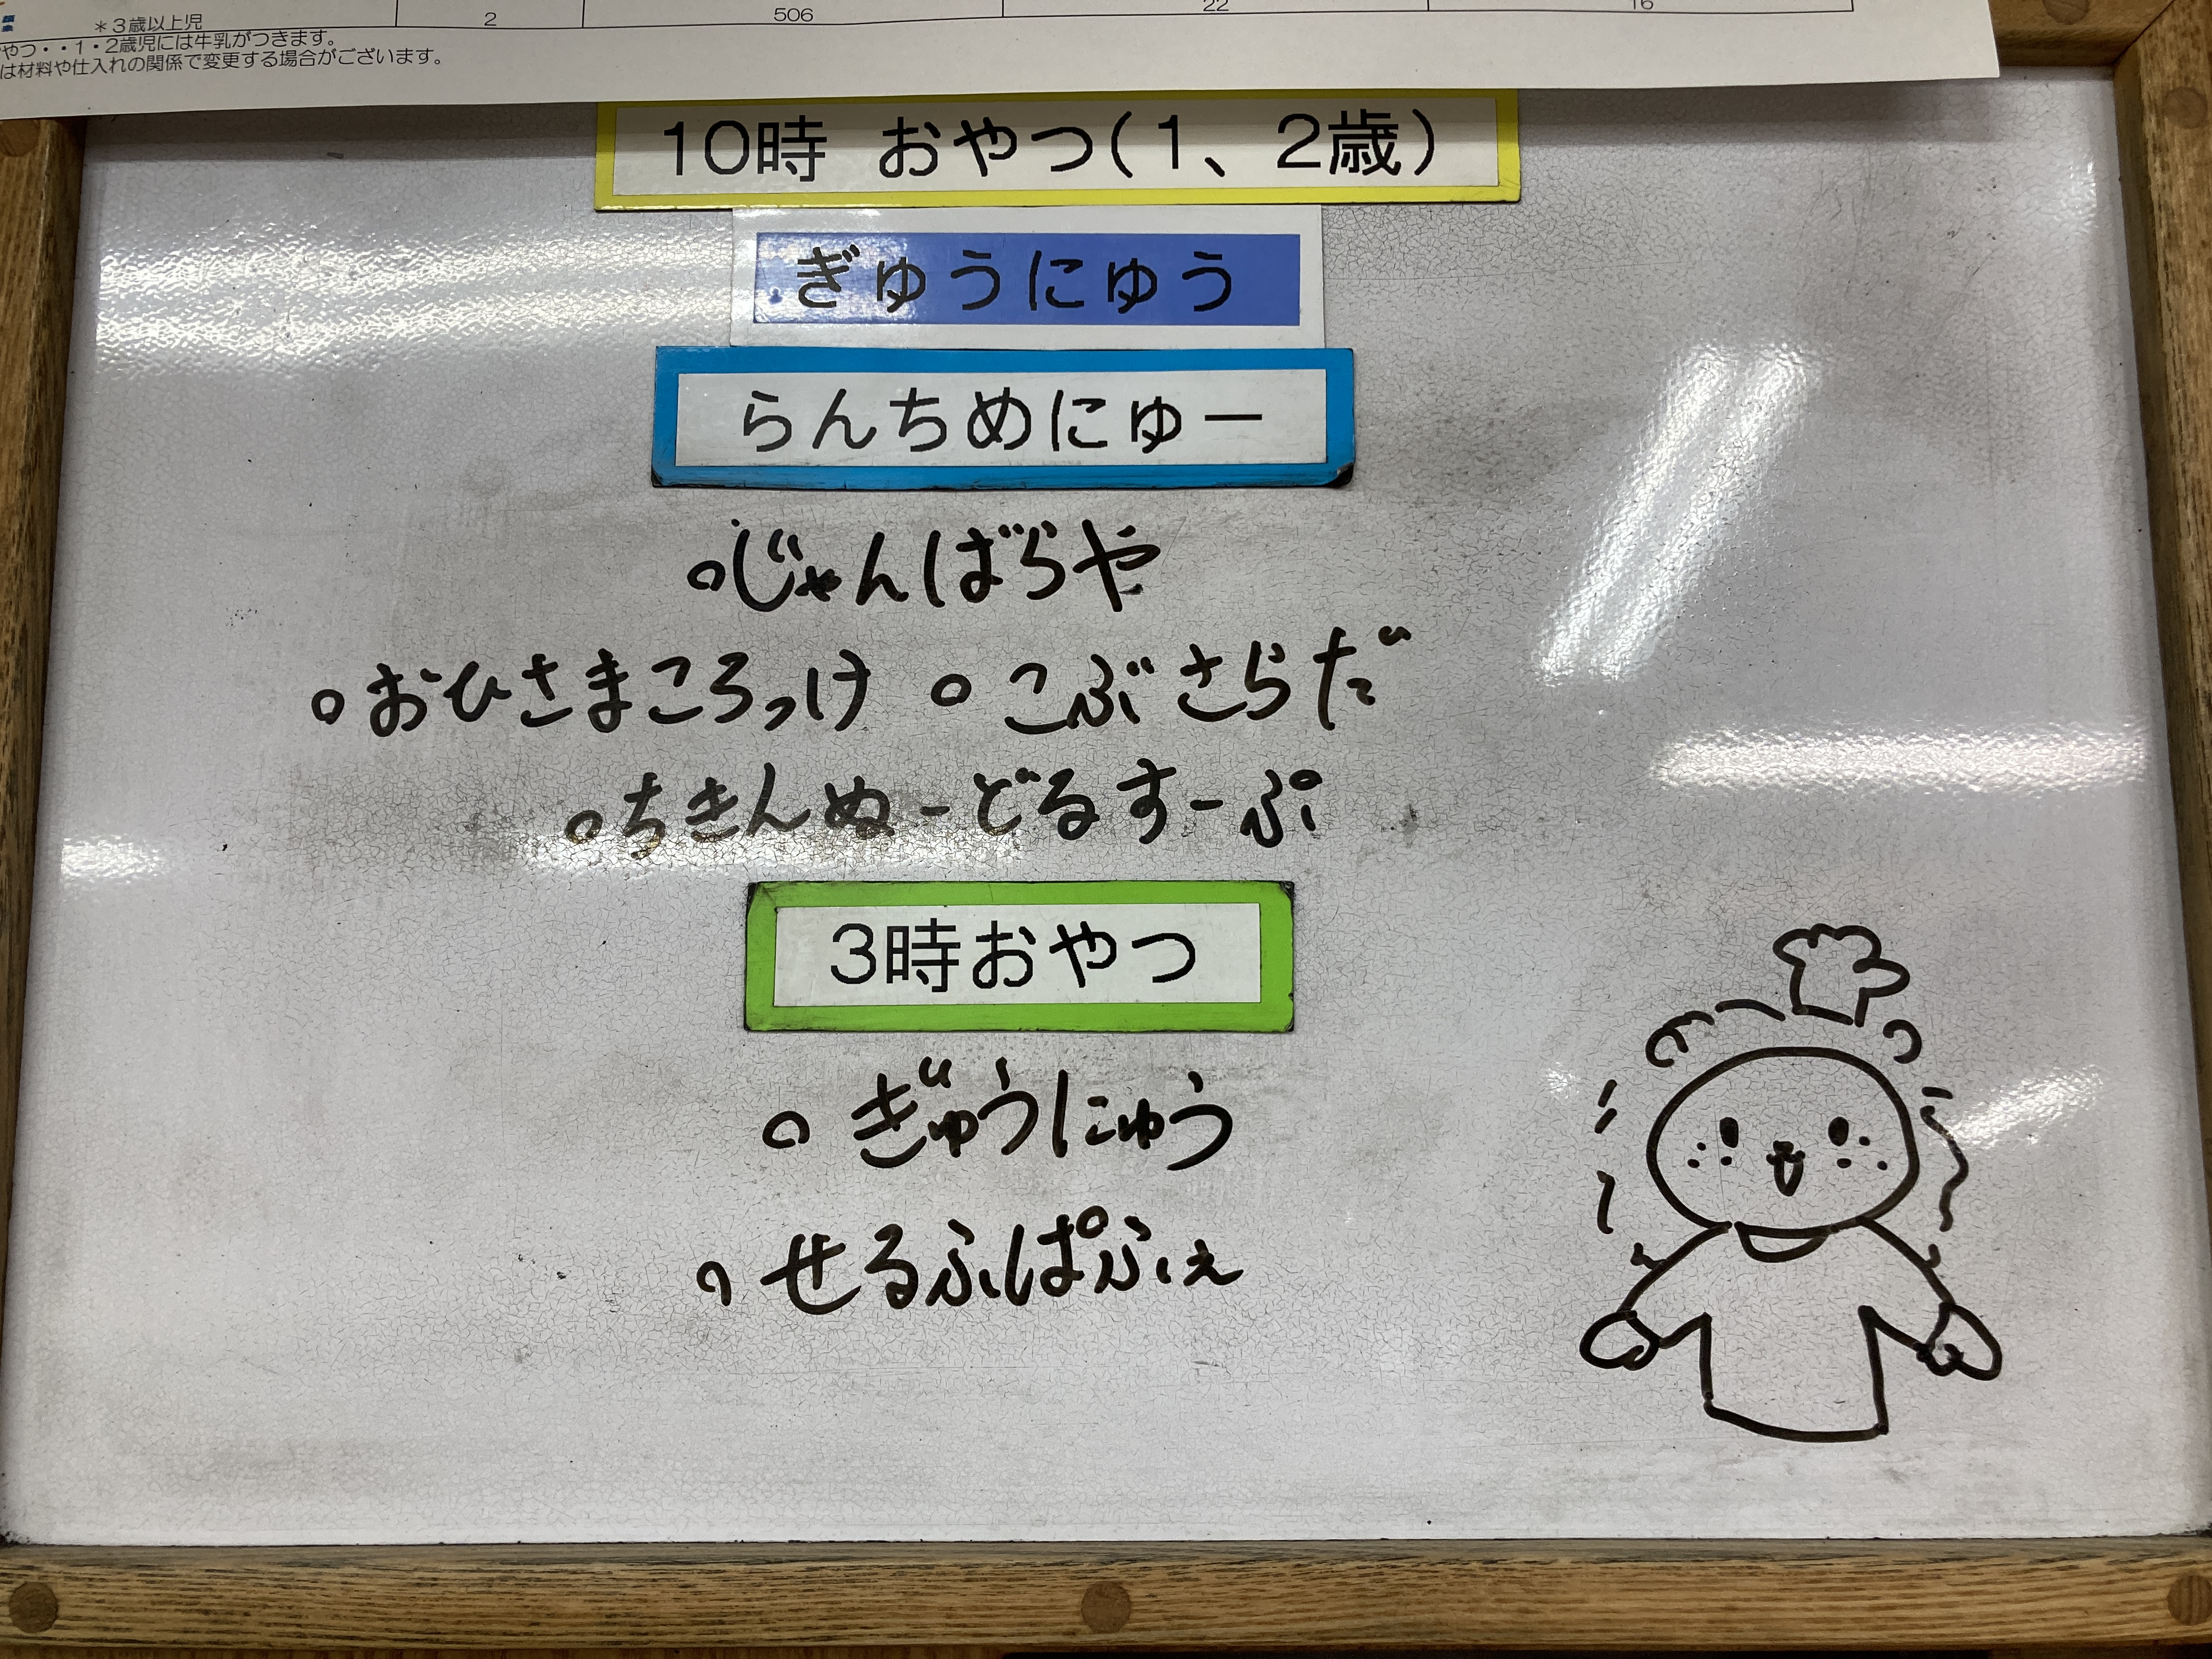 ＊3歳以上児 2 506 22 16
やつ・・1・2歳児には牛乳がつきます。
は材料や仕入れの関係で変更する場合がございます。
10時 おやつ(1、2歳)
ぎゅうにゅう
らんちめにゅー
○じゃんばらや
○おひさまころっけ ○こぶさらだ
○ちきんぬーどるすーぷ
3時おやつ
○ぎゅうにゅう
○せるふぱふぇ